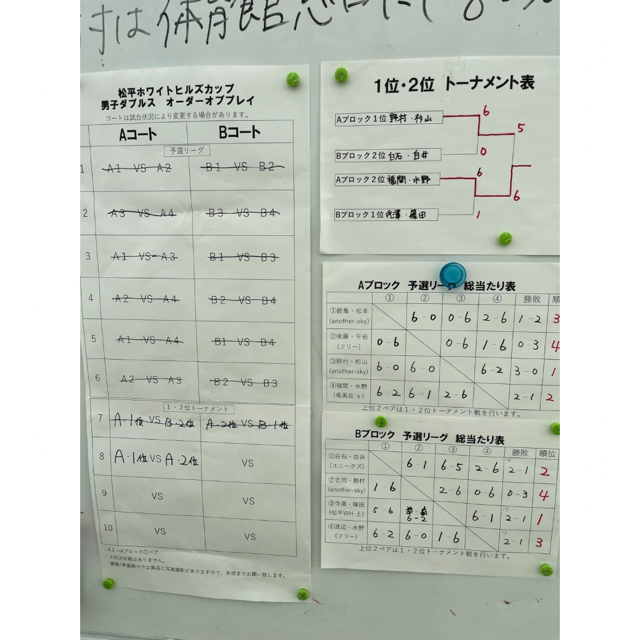 は体育館窓口に
松平ホワイトヒルズカップ
男子ダブルス オーダーオブプレイ
コートは試合状況により変更する場合があります。
Aコート Bコート
予選リーグ
1 A1 VS A2 B1 VS B2
2 A3 VS A4 B3 VS B4
3 A1 VS A3 B1 VS B3
4 A2 VS A4 B2 VS B4
5 A1 VS A4 B1 VS B4
6 A2 VS A3 B2 VS B3
1・2位トーナメント
7 A・1位 VS B・2位 A・2位 VS B・1位
8 A・1位 VS A・2位 VS
9 VS VS
10 VS VS
・A1→Aブロック①ペア
・3位決定戦はありません。
・優勝/準優勝ペアは賞品と写真撮影がありますので、本部までお願い致します。
1位・2位 トーナメント表
Aブロック1位 野村・杉山 6
5
Bブロック2位 白石・白井 0
Aブロック2位 福間・水野 6
6
Bブロック1位 寺澤・篠田 1
Aブロック 予選リーグ 総当たり表
① ② ③ ④ 勝敗 順位
①薮亀・松本 (another-sky) 6-0 0-6 2-6 1-2 3
②後藤・平谷 (フリー) 0-6 0-6 1-6 0-3 4
③野村・杉山 (another-sky) 6-0 6-0 6-2 3-0 1
④福間・水野 (竜美丘's) 6-2 6-1 2-6 2-1 2
上位2ペアは1・2位トーナメント戦を行います。
Bブロック 予選リーグ 総当たり表
① ② ③ ④ 勝敗 順位
①白石・白井 (ユニークズ) 6-1 6-5 2-6 2-1 2
②吉岡・熱村 (another-sky) 1-6 2-6 0-6 0-3 4
③寺澤・篠田 (松平WH・土) 5-6 6-2 6-1 2-1 1
④渡辺・水野 (フリー) 6-2 6-0 1-6 2-1 3
上位2ペアは1・2位トーナメント戦を行います。